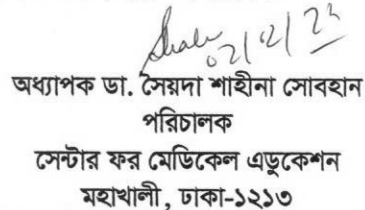 02/12/23
অধ্যাপক ডা. সৈয়দা শাহীনা সোবহান
পরিচালক
সেন্টার ফর মেডিকেল এডুকেশন
মহাখালী, ঢাকা-১২১৩